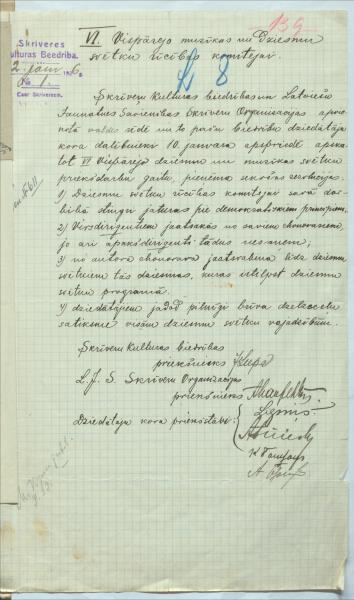 139
Skriveres
Kulturas Beedriba.
VI. Vispārejo muzikas un Dziesmu
svētku rīcības komitejai
8
Skrīveru Kulturas biedrības un Latviešu
Jaunatnes Savienības Skrīveru Organizācijas apvie
notā valdes sēde un to pašu biedrību dziedātāju
kora dalibnieki 10. janvarā apspriede apska
tot VI Vispārejo dziesmu un muzikas svētku
priekšdarbu gaitu, pieņēma sekošas rezolucijas.
1) Dziesmu svētku rīcības komitejai savā dar
bibā stingri jāturas pie demokratiskiem principiem.
2) Virsdirigentiem jāatsakās no saviem honorariem,
jo arī apakšdirigenti tādus nesaņem;
3) no autoru honorara jāatsvabina tās dziesmu
svētkiem tās dziesmas, kuras uzlipst dziesmu
svētku programā.
4) dziedātājiem jādod pilnīgi brīva dzelzsceļu
satiksme visām dziesmu svētku vajadzībām.
Skrīveru Kulturas biedrības
priekšnieks
L. J. S. Skrīveru Organizācijas
priekšnieks
Dziedātāju kora priekšstāvji: